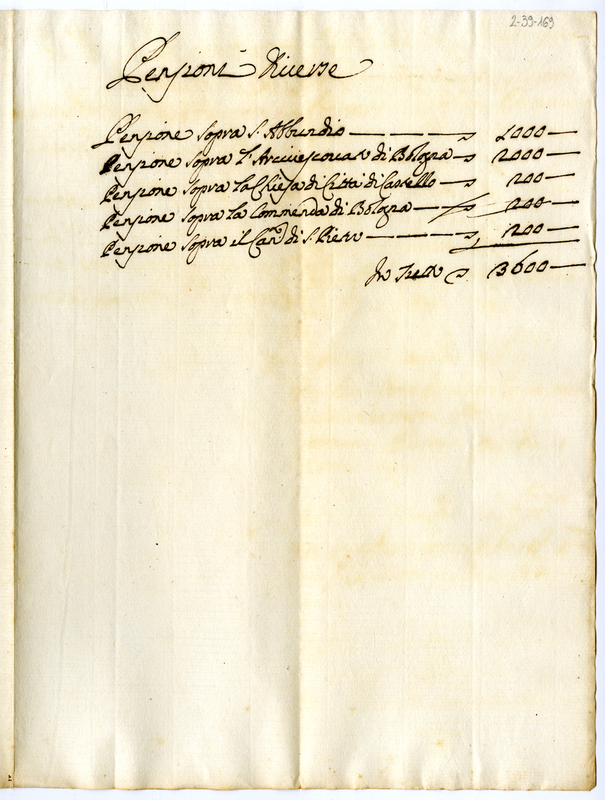 2-39-169
Pensioni diverse
Pensione sopra S. Abbundio — — — — 1000 —
Pensione sopra l'Arcivescovato di Bologna — 2000 —
Pensione sopra la Chiesa di Città di Castello — 200 —
Pensione sopra la Commenda di Bologna — 200 —
Pensione sopra il Can.to di S. Pietro — — — — 200 —
In tutto 3600 —